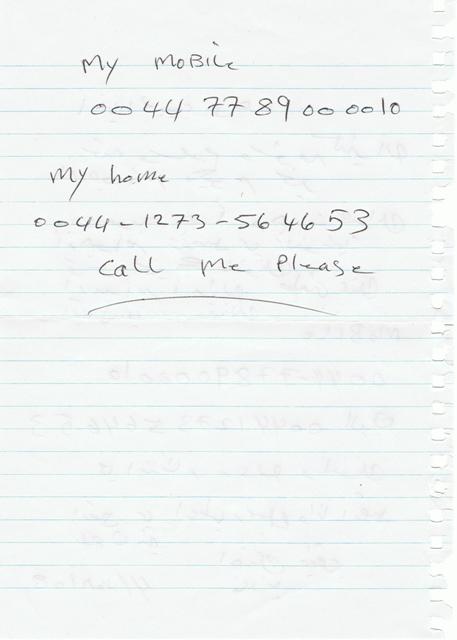 My MoBile
0044 77 89 00 00 10
My home
0044-1273-564653
Call Me Please